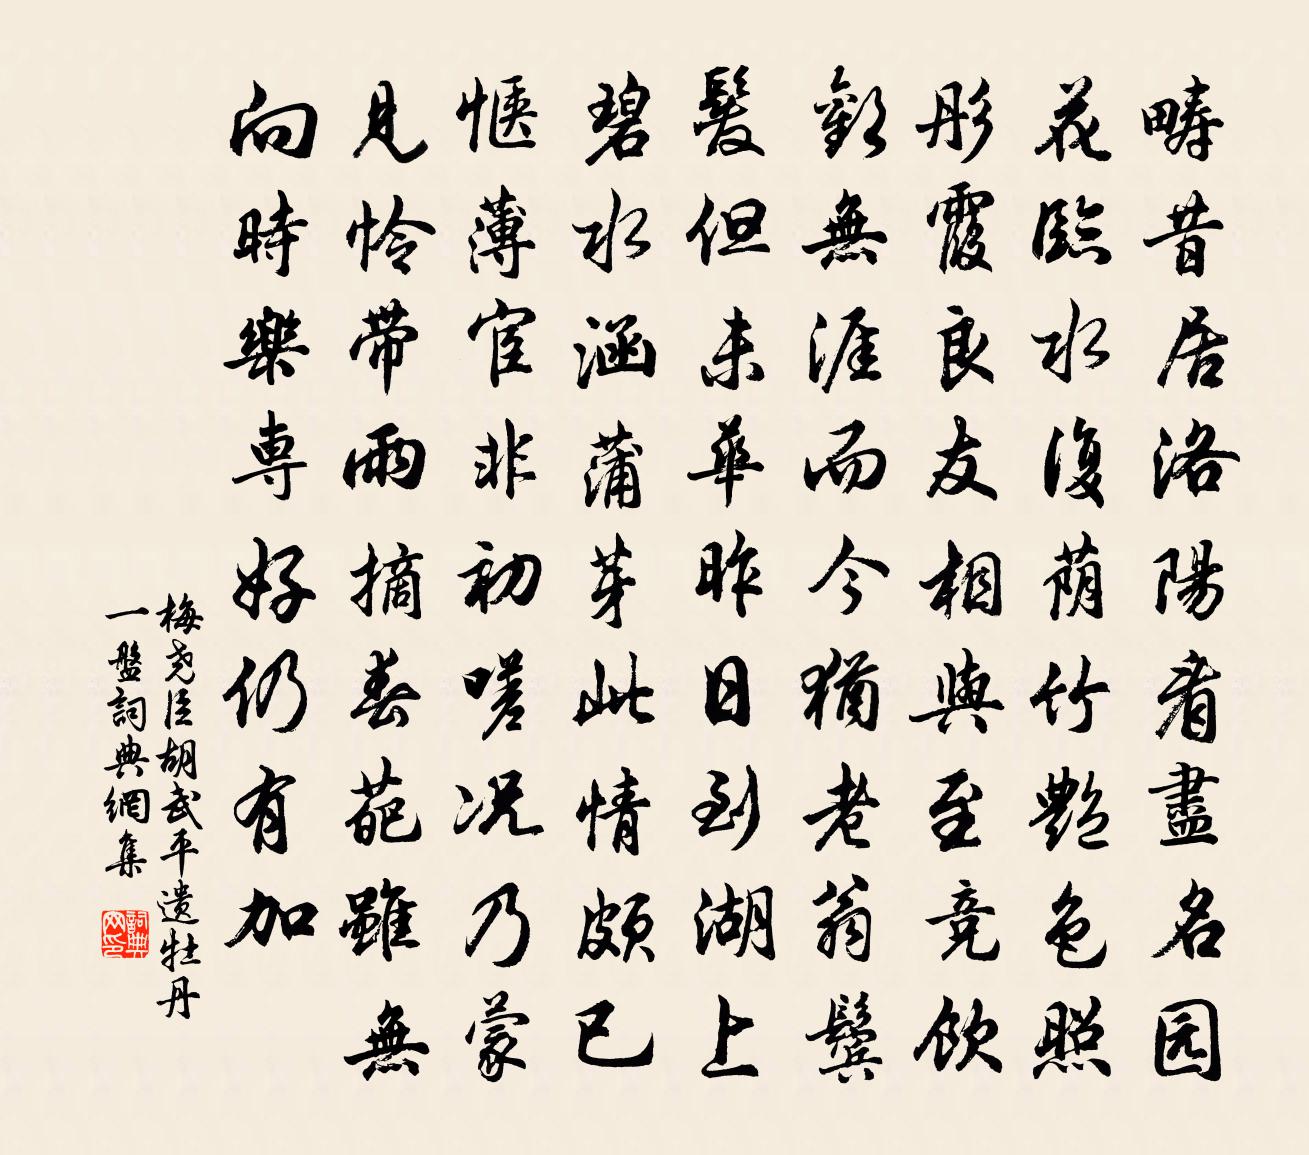 疇昔居洛陽看盡名园
花臨水復荫竹艷色照
彤霞良友相與至竞飲
歡無涯而今猶老翁鬓
髮但未華昨日到湖上
碧水涵蒲芽此情頗已
惬薄宦非初嗟况乃蒙
見怜带雨摘春葩雖無
向時樂専好仍有加
梅尧臣胡武平遗牡丹
一盤詞典網集
詞典网印